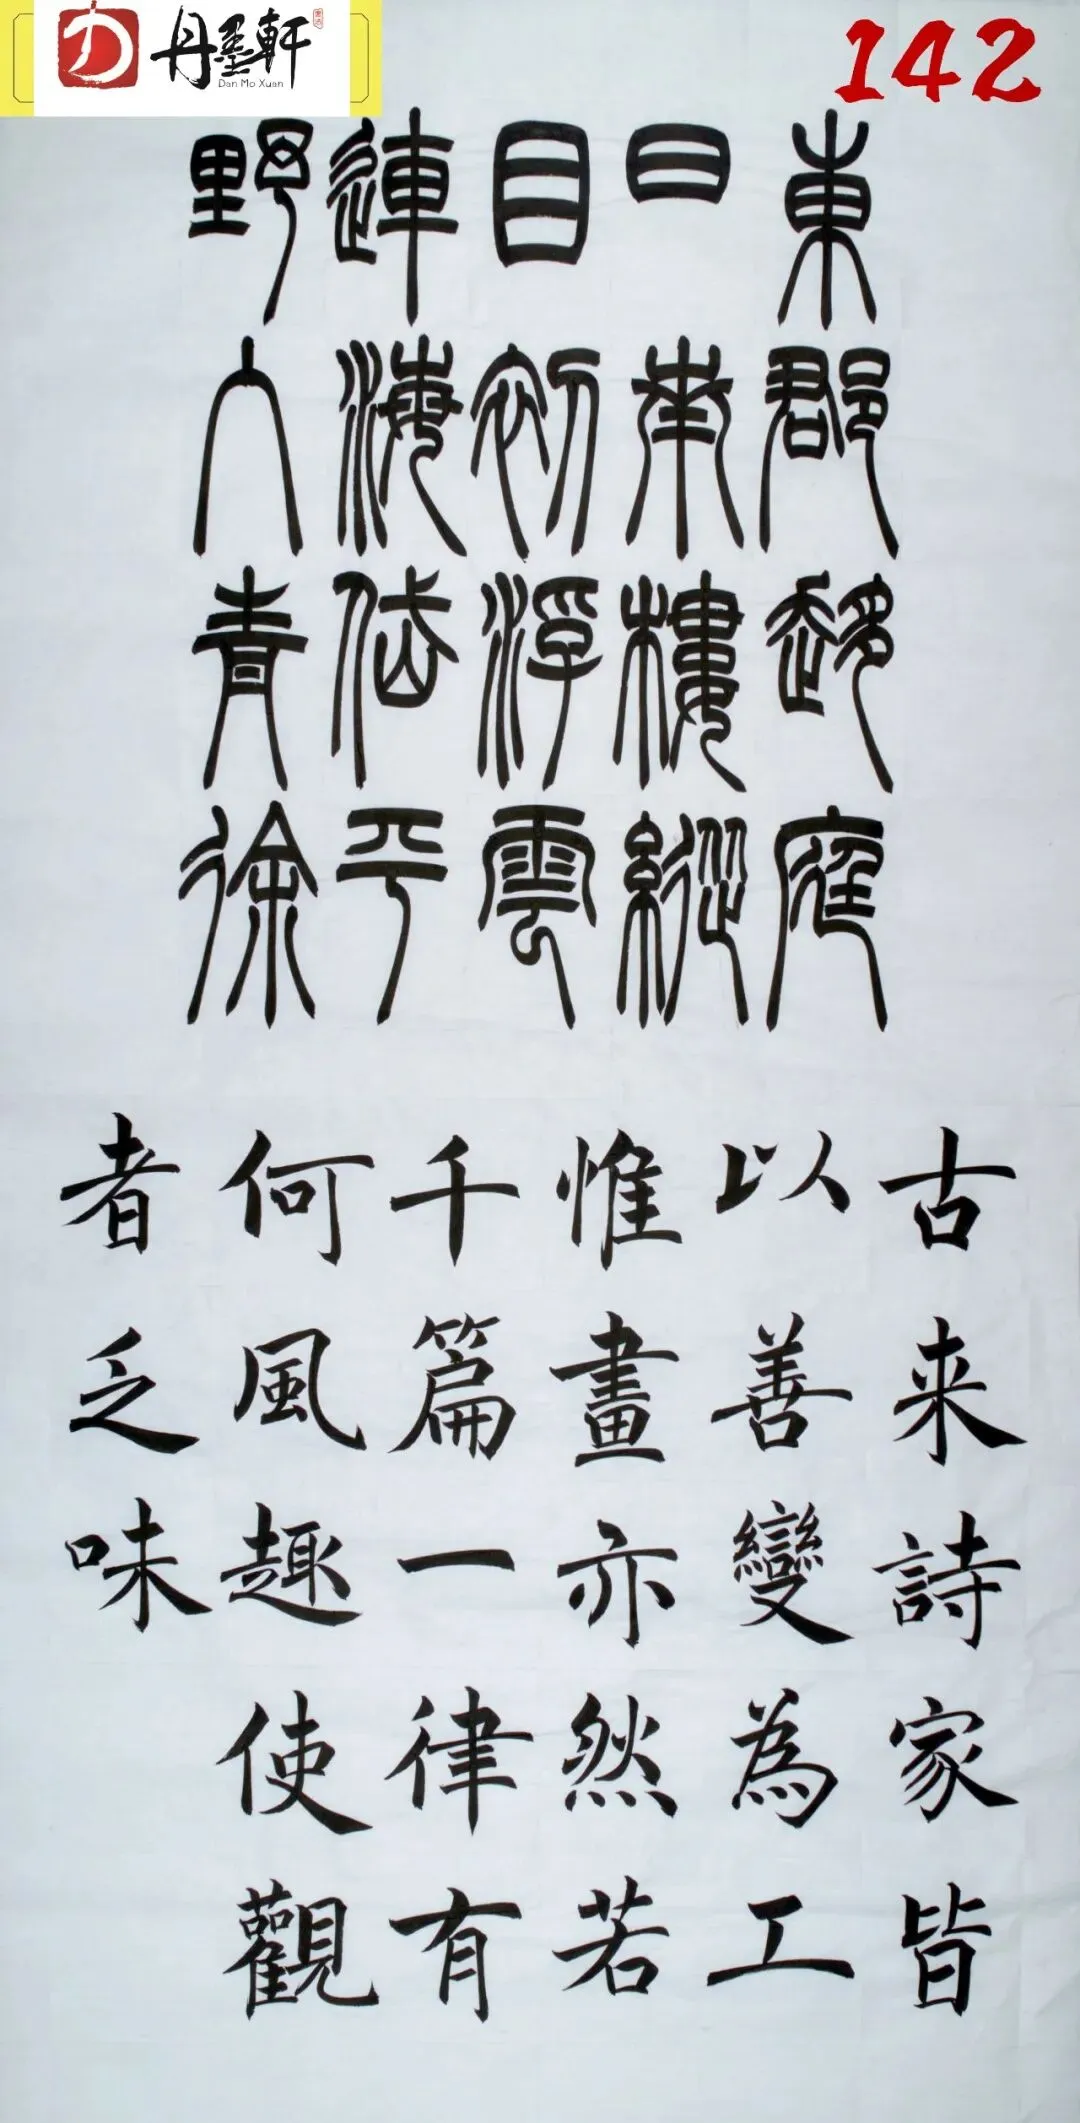 丹墨軒
Dan Mo Xuan
142
東郡趍庭
日南樓縱
目初浮雲
連海岱平
野入青徐
古来詩家皆
以善變為工
惟畫亦然若
千篇一律有
何風趣使觀
者乏味